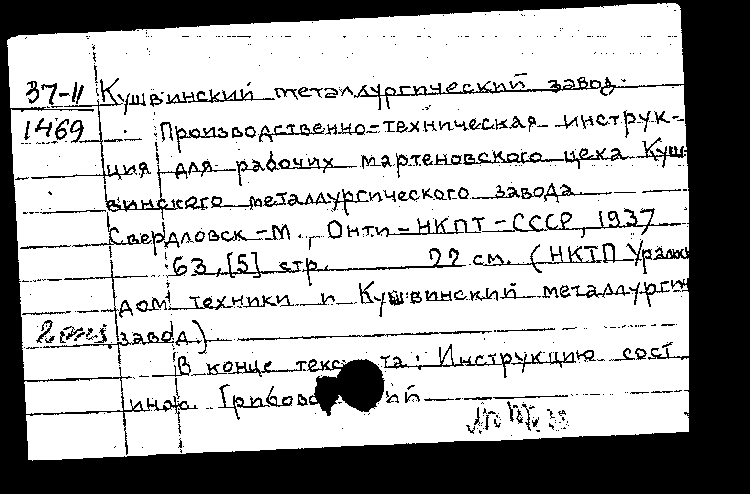 37-11 Кушвинский металлургический завод.
1469 Производственно-техническая инструк-
ция для рабочих мартеновского цеха Куш-
винского металлургического завода.
Свердловск-М., Онти-НКПТ-СССР, 1937
63,[5] стр. 22 см. (НКТП Уральск
дом техники и Куш­винский металлургич
завод.)
В конце текста: Инструкцию сост
инж.